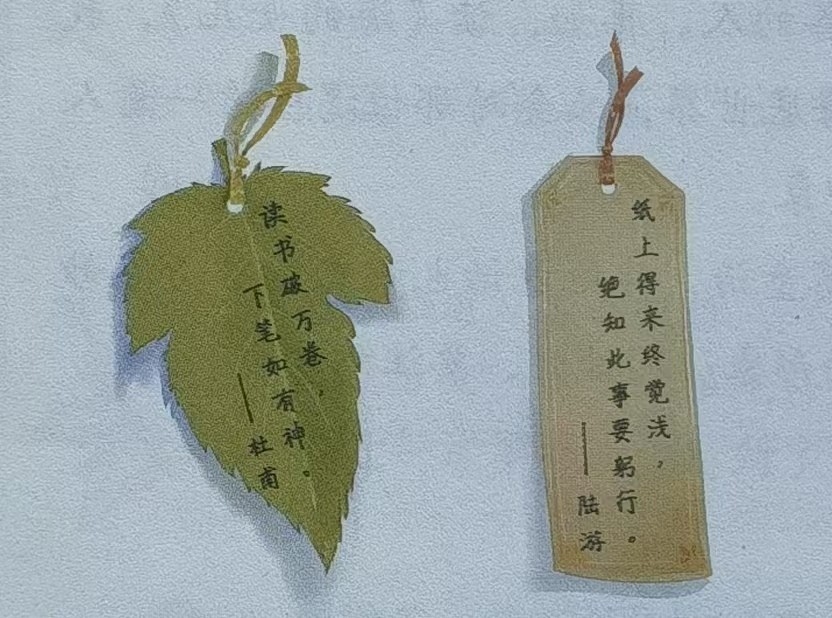 读书破万卷，
下笔如有神。
——杜甫
纸上得来终觉浅，
绝知此事要躬行。
——陆游